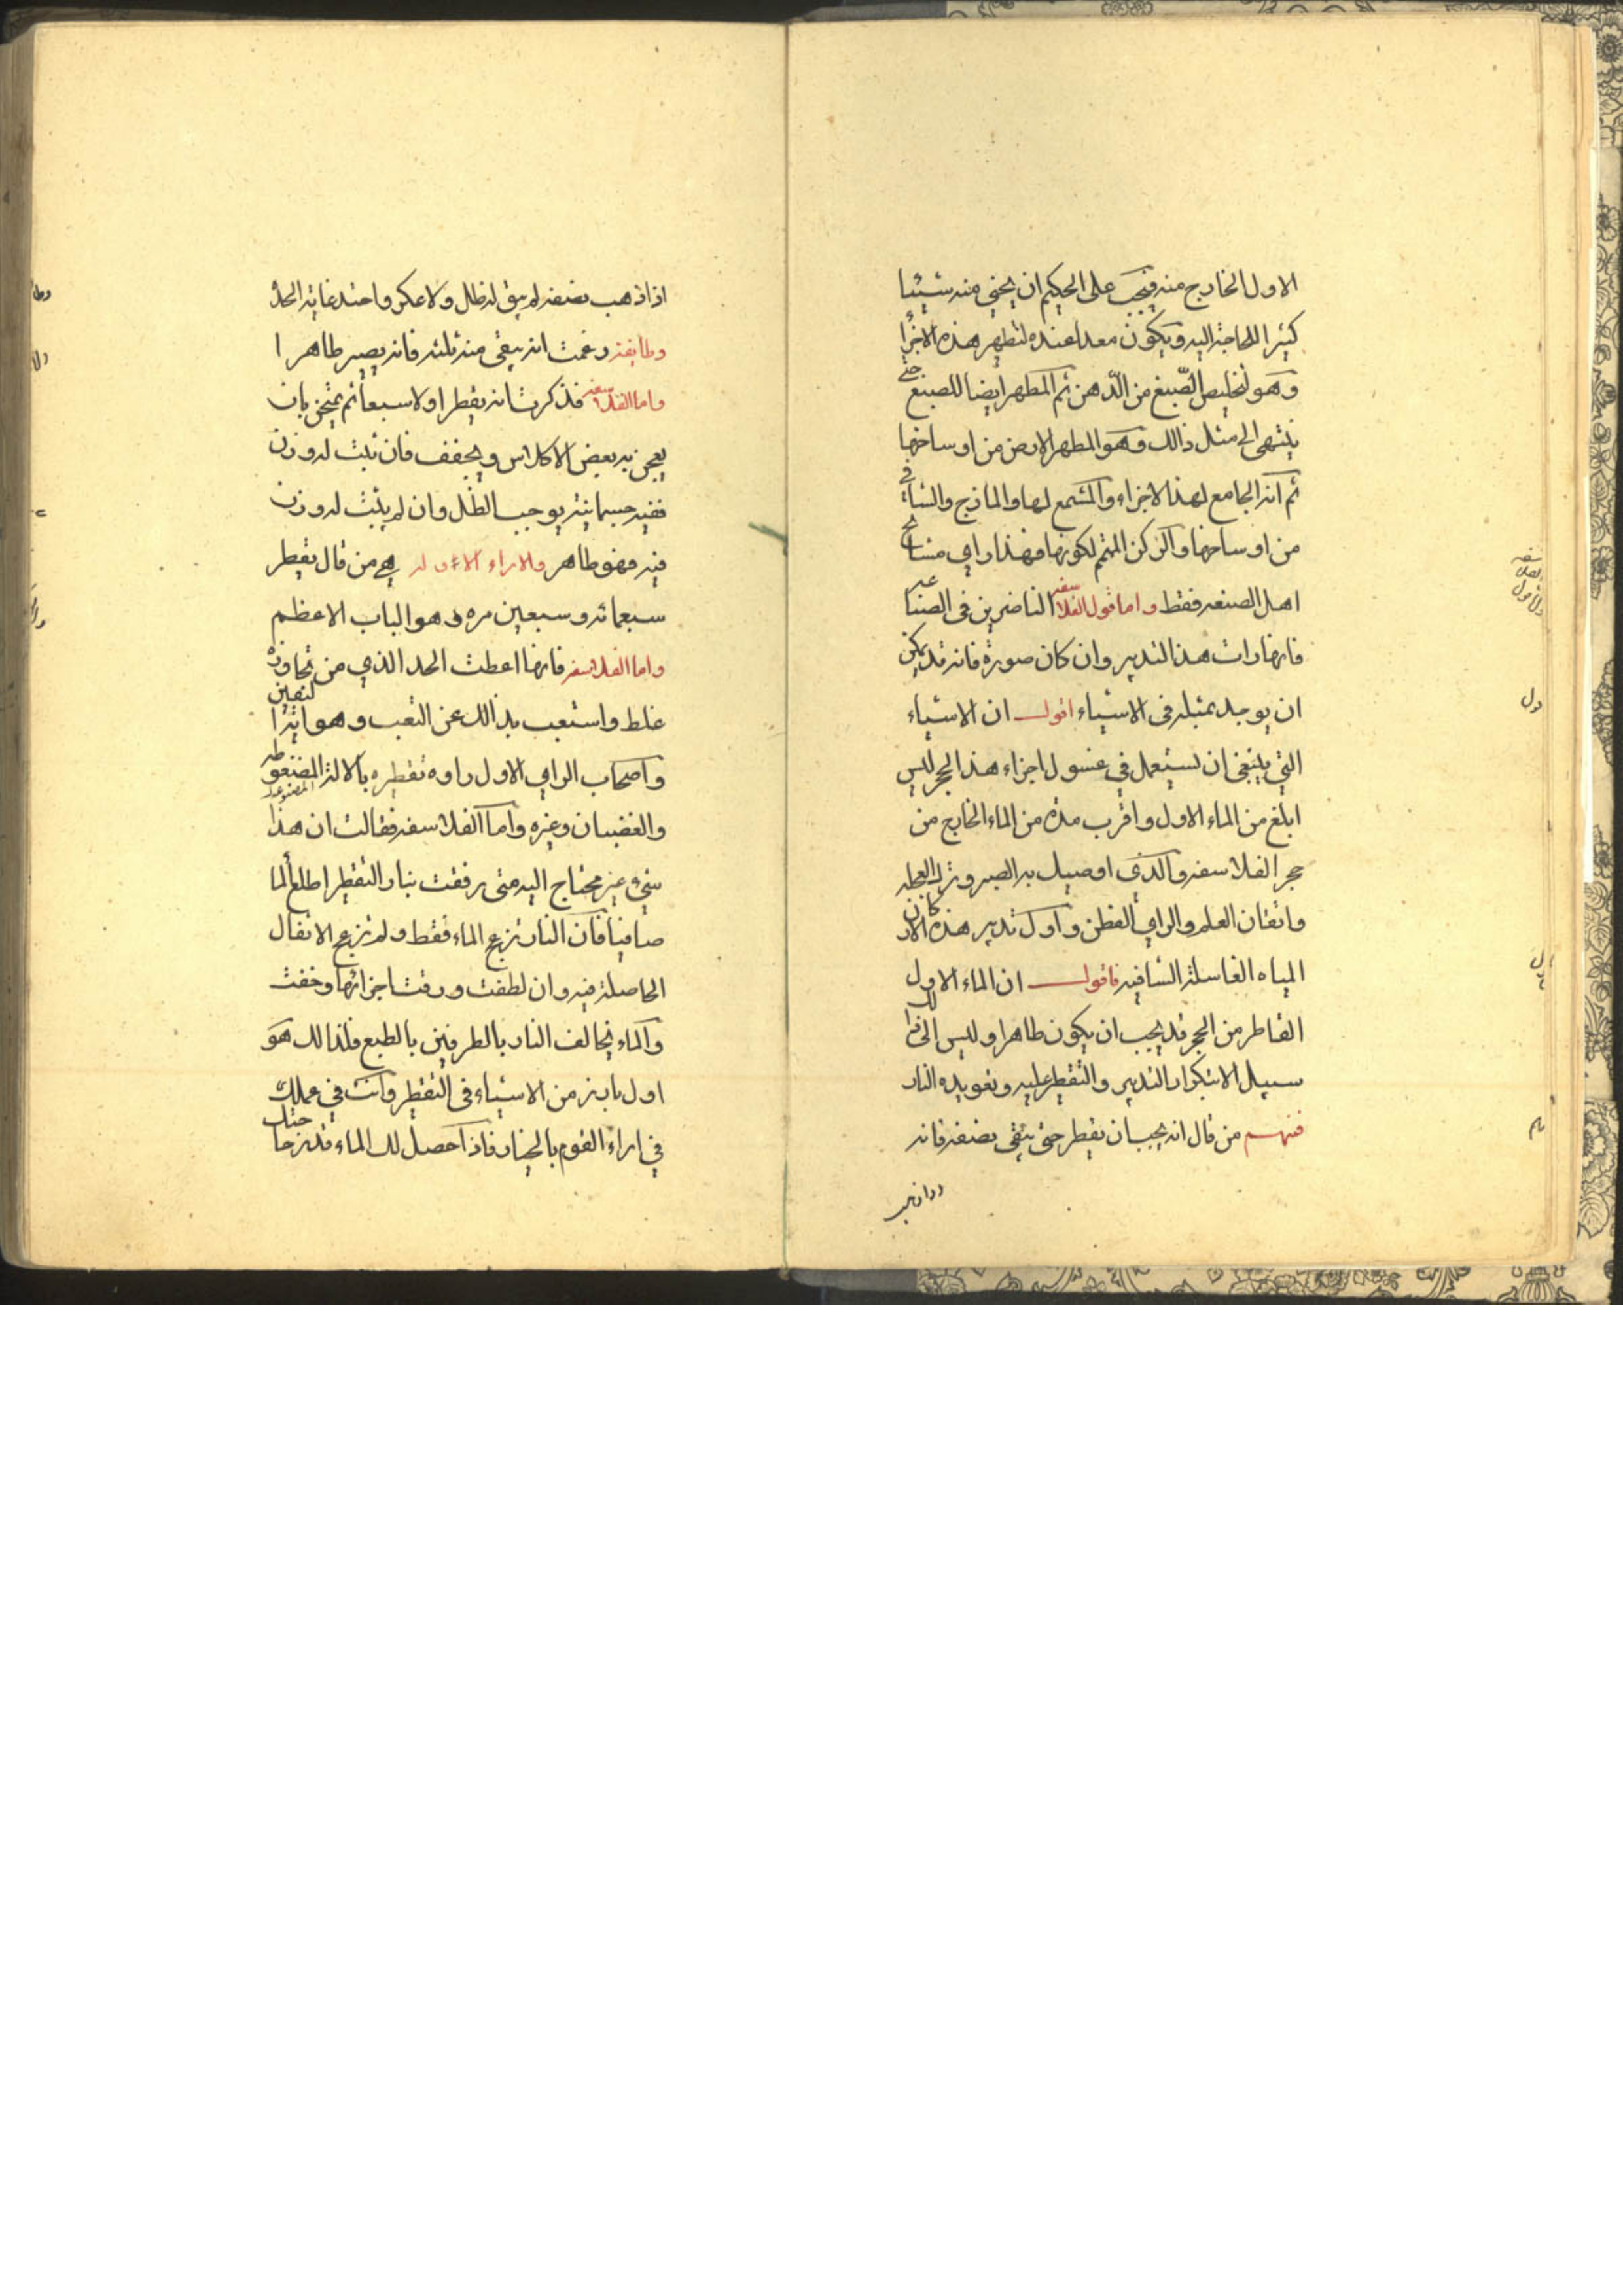 الاول الخارج منه فيجب على الحكيم ان يخفي منه شيئا
كثيرا للحاجة اليه ويكون معدا عنده لتطهر هذه الاجزا
وهو لتخليص الصّبغ من الدّهن ثم المطهر ايضا للصبغ حتى
ينتهى الى مثل ذالك وهو المطهر الارض من اوساخها
ثم انه الجامع لهذا الاجزاء والمشمع لها والمازج والشافى
من اوساخها والركن المتم لكونها فهذا راي مشايخ
اهل الصنعه فقط واما قول الفلاسفه الناضرين فى الصنا عه
فانها رات هذا التدبير وان كان صورة فانه قد يمكن
ان يوجد بمثله فى الاشياء اقول ان الاشياء
التي ينبغى ان تستعمل في غسول اجزاء هذا الحجر ليس
ابلغ من الماء الاول واقرب مدة من الماء الخارج من
حجر الفلاسفه والذى اوصيك به الصبر وترك العجله
واتقان العلم والراي الفطن واول تدبير هذه الاركان
المياه الغاسلة الشافيه فاقول ان الماء الاول
القاطر من الحجر قد يجب ان يكون طاهرا وليس الى ذالك
سبيل الا بتكرار التدبير والتقطير عليه وتعويده النار
فمنهم من قال انه يجب ان يقطر حتى يبقى نصفه فانه
اذا ذهب نصفه لم يبق له ظل ولا عكر واخذ غاية الحد
وطايفة زعمت انه يبقى منه ثلثه فانه يصير طاهرا
واما الفلاسفه فذكرت انه يقطر اولا سبعا ثم يمتحن بان
يعجن به بعض الاكلاس ويجفف فان ثبت له وزن
ففيه جسمانية يوجب الظل وان لم يثبت له وزن
فيه فهو طاهر والاراء الاوله هي من قال يقطر
سبعمائه وسبعين مره وهو الباب الاعظم
واما الفلاسفه فانها اعطت الحد الذي من تجاوزه
غلط واستعب بذالك عن التعب وهو
واصحاب الراي الاول راوه تقطيره بالالة
والقضبان وغيره واما الفلاسفه فقالت ان هذا
شيء غير محتاج اليه متى رفقت بنار التقطير اطلع الما
صافيا فان النار تزعج الماء فقط ولم تزعج الاثقال
الحاصلة فيه وان لطفت ورقت اجزائها وخفت
والماء يخالف النار بالطرفين بالطبع فلذالك هو
اول بارز من الاشياء فى التقطير وانت في عملك
في اراء القوم بالخيار فاذا حصل لك الماء